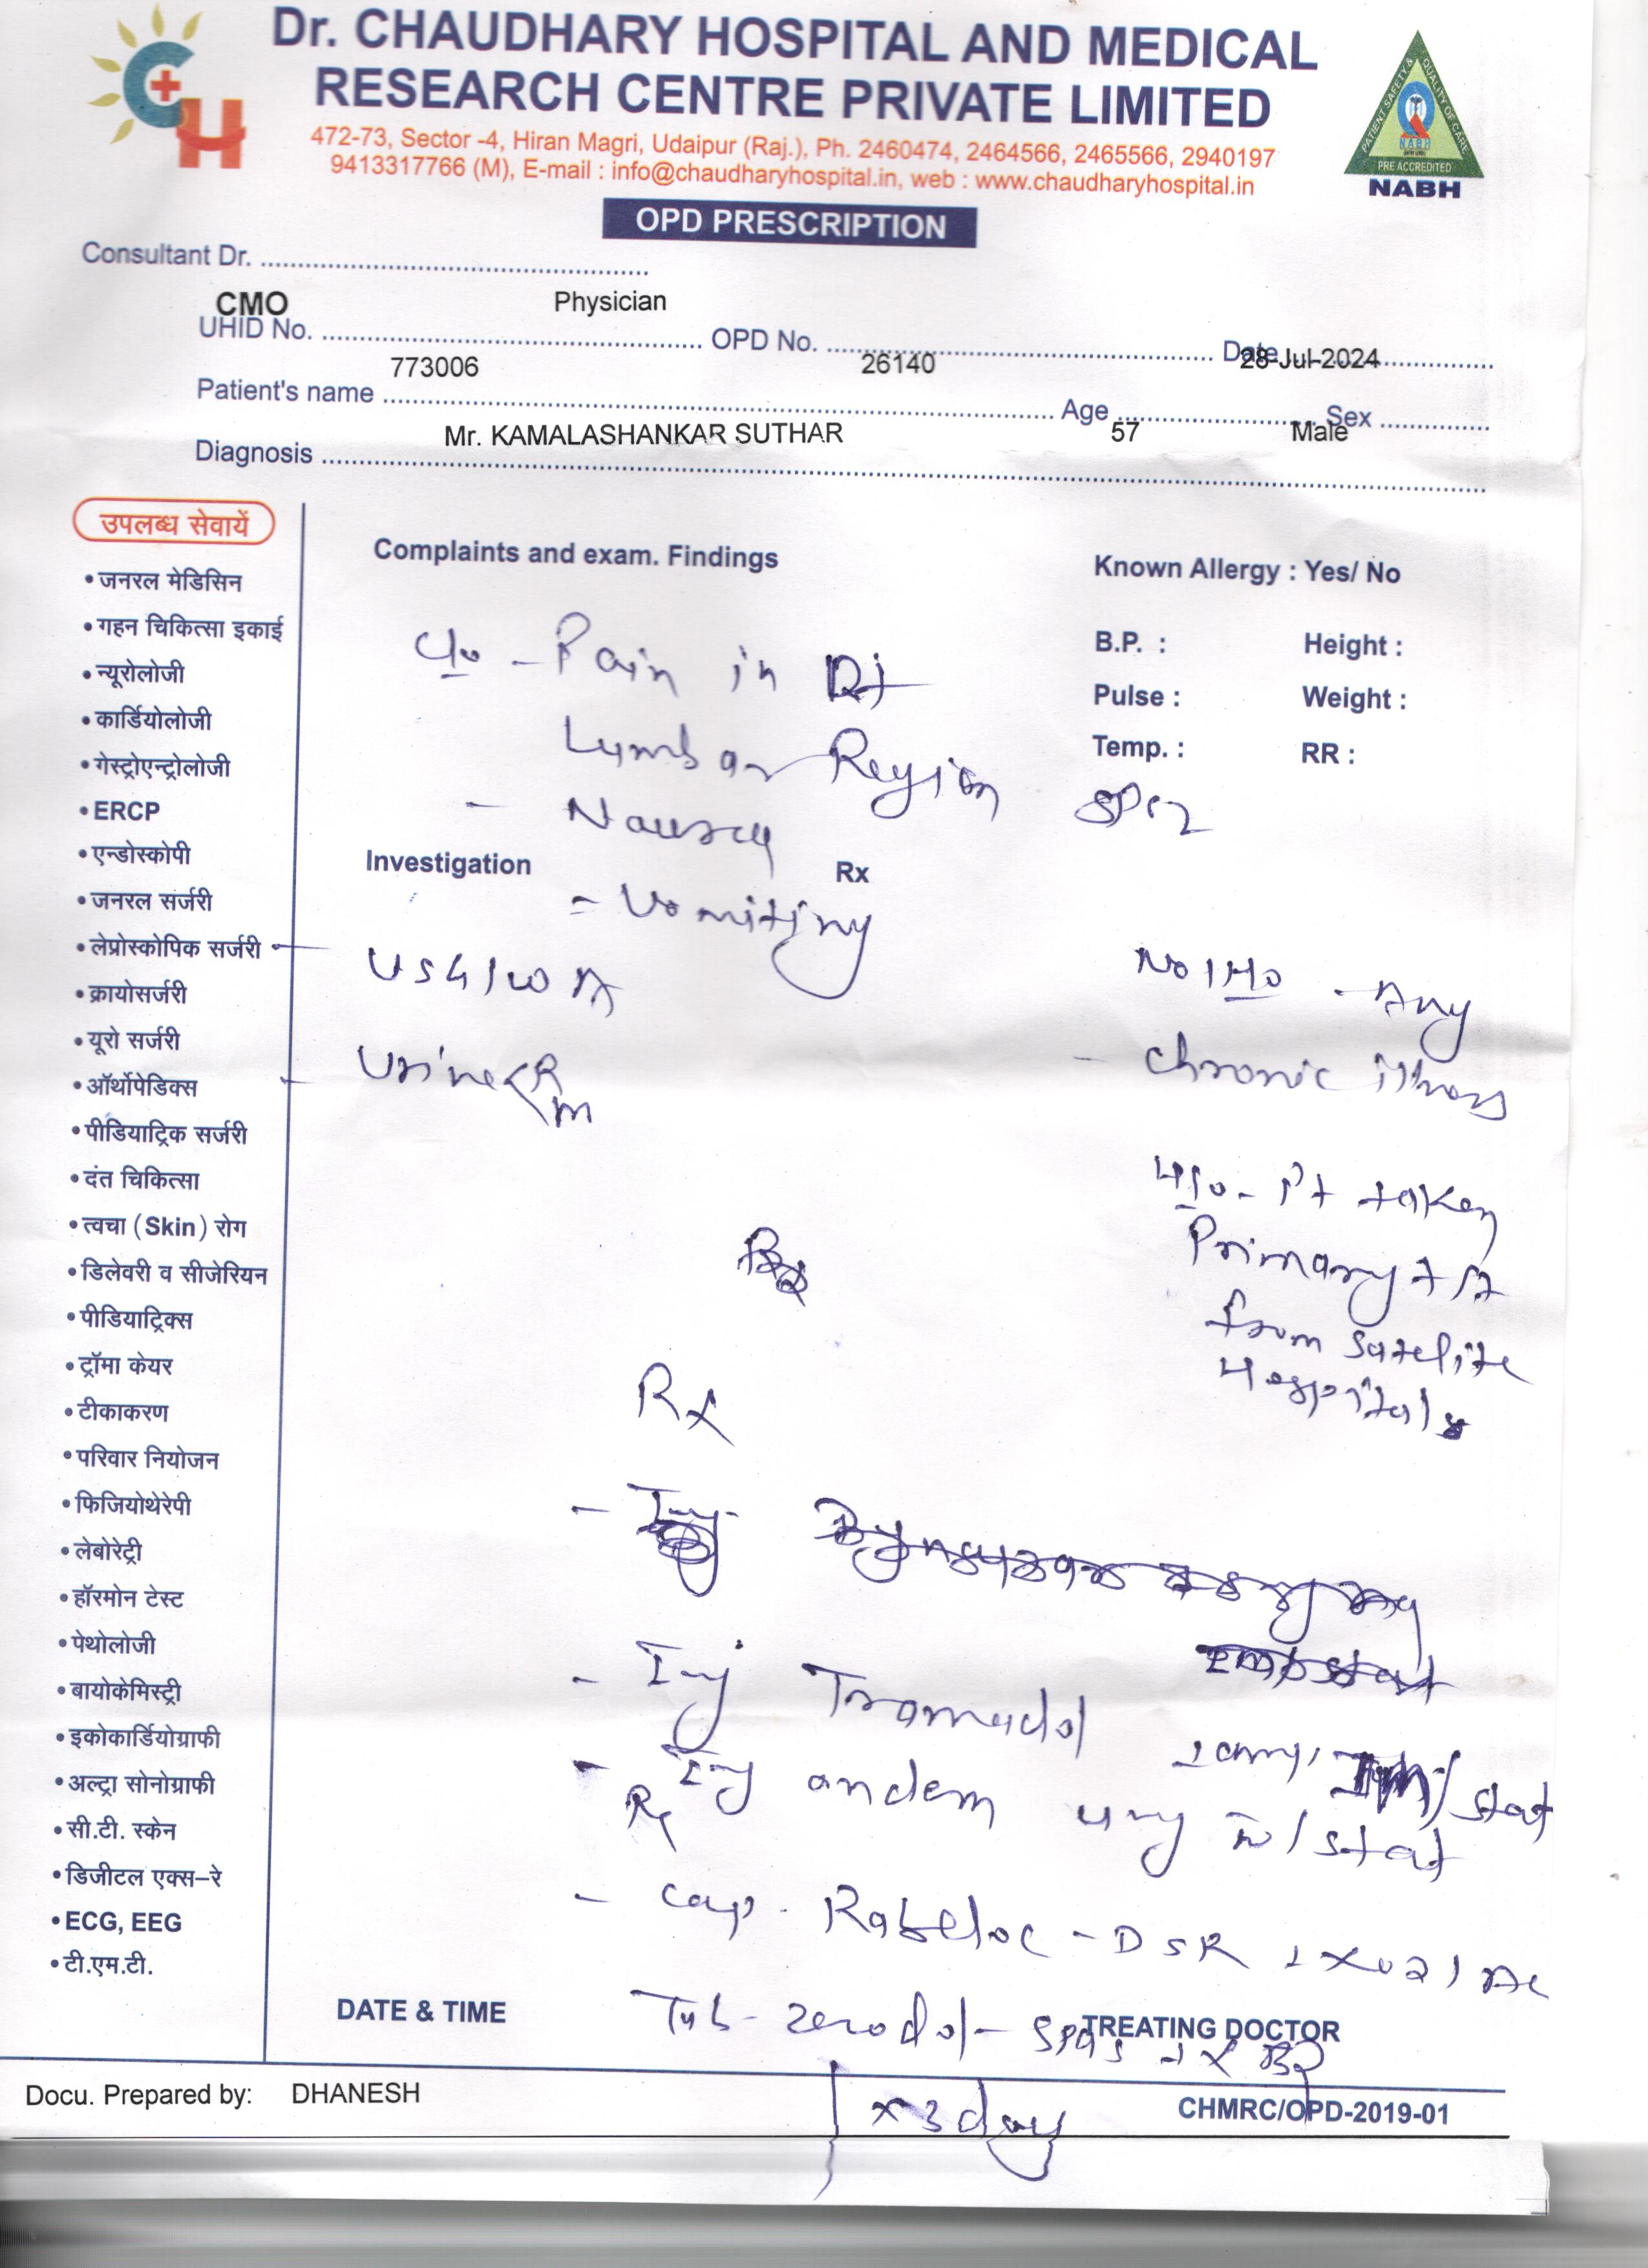 Dr. CHAUDHARY HOSPITAL AND MEDICAL
RESEARCH CENTRE PRIVATE LIMITED
472-73, Sector -4, Hiran Magri, Udaipur (Raj.), Ph. 2460474, 2464566, 2465566, 2940197
9413317766 (M), E-mail : info@chaudharyhospital.in, web : www.chaudharyhospital.in
PATIENT SAFETY & QUALITY OF CARE
NABH
PRE ACCREDITED
NABH
OPD PRESCRIPTION
Consultant Dr.
CMO Physician
UHID No. OPD No. Date
773006 26140 28-Jul-2024
Patient's name Age Sex
Mr. KAMALASHANKAR SUTHAR 57 Male
Diagnosis
उपलब्ध सेवायें
• जनरल मेडिसिन
• गहन चिकित्सा इकाई
• न्यूरोलोजी
• कार्डियोलोजी
• गेस्ट्रोएन्ट्रोलोजी
• ERCP
• एन्डोस्कोपी
• जनरल सर्जरी
• लेप्रोस्कोपिक सर्जरी
• क्रायोसर्जरी
• यूरो सर्जरी
• ऑर्थोपेडिक्स
• पीडियाट्रिक सर्जरी
• दंत चिकित्सा
• त्वचा (Skin) रोग
• डिलेवरी व सीजेरियन
• पीडियाट्रिक्स
• ट्रॉमा केयर
• टीकाकरण
• परिवार नियोजन
• फिजियोथेरेपी
• लेबोरेट्री
• हॉरमोन टेस्ट
• पेथोलोजी
• बायोकेमिस्ट्री
• इकोकार्डियोग्राफी
• अल्ट्रा सोनोग्राफी
• सी.टी. स्केन
• डिजीटल एक्स-रे
• ECG, EEG
• टी.एम.टी.
Complaints and exam. Findings
Known Allergy : Yes/ No
B.P. : Height :
Pulse : Weight :
Temp. : RR :
c/o - Pain in Rt
Lumbar Region
- Nausea
Investigation Rx
= Vomiting
USG/W A
Urine R/m
No H/o - Any
- chronic illness
H/o - Pt taken
Primary
from satelite
Hospital
Rx
- Inj Tramadol 1 amp / stat
- Inj andem / stat
- cap. Rabeloc - DSR
Tab - zerodol - spas
x 3 day
DATE & TIME
TREATING DOCTOR
Docu. Prepared by: DHANESH
CHMRC/OPD-2019-01